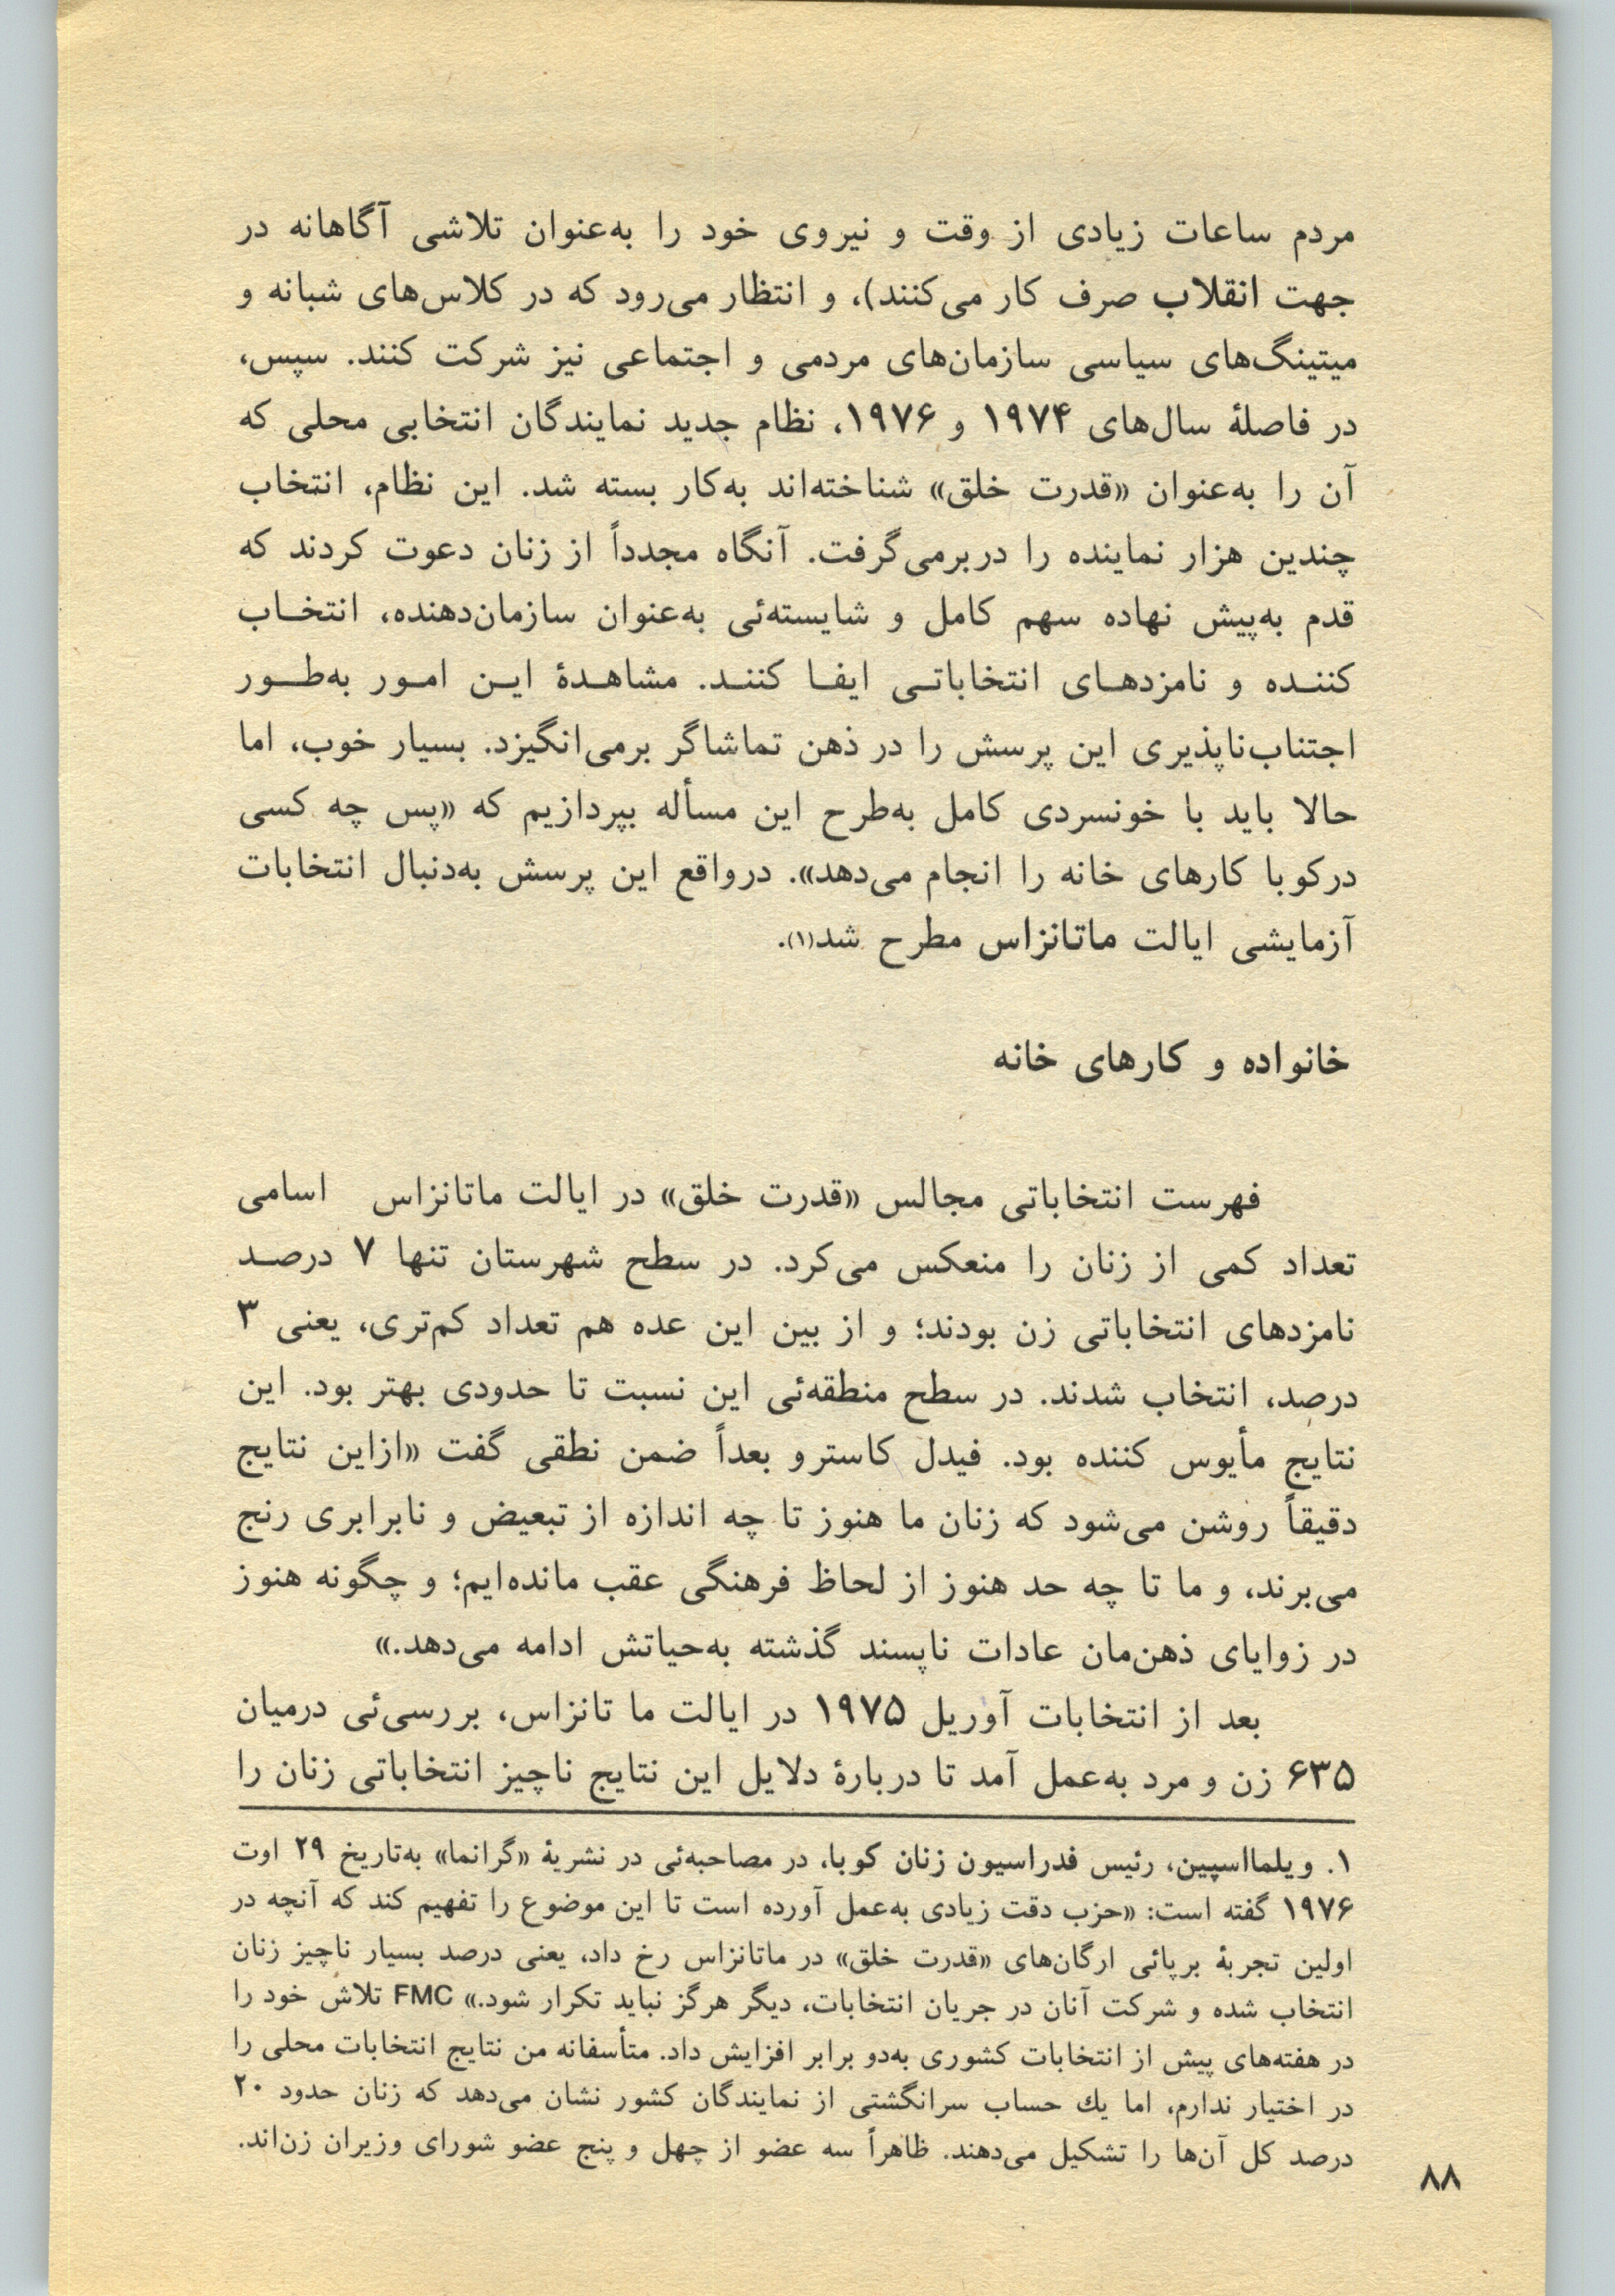 مردم ساعات زیادی از وقت و نیروی خود را به‌عنوان تلاشی آگاهانه در
جهت انقلاب صرف کار می‌کنند)، و انتظار می‌رود که در کلاس‌های شبانه و
میتینگ‌های سیاسی سازمان‌های مردمی و اجتماعی نیز شرکت کنند. سپس،
در فاصلهٔ سال‌های ۱۹۷۴ و ۱۹۷۶، نظام جدید نمایندگان انتخابی محلی که
آن را به‌عنوان «قدرت خلق» شناخته‌اند به‌کار بسته شد. این نظام، انتخاب
چندین هزار نماینده را دربرمی‌گرفت. آنگاه مجدداً از زنان دعوت کردند که
قدم به‌پیش نهاده سهم کامل و شایسته‌ئی به‌عنوان سازمان‌دهنده، انتخـاب
کننـده و نامزدهـای انتخاباتـی ایفـا کننـد. مشاهـدهٔ ایـن امـور به‌طـور
اجتناب‌ناپذیری این پرسش را در ذهن تماشاگر برمی‌انگیزد. بسیار خوب، اما
حالا باید با خونسردی کامل به‌طرح این مسأله بپردازیم که «پس چه کسی
درکوبا کارهای خانه را انجام می‌دهد». درواقع این پرسش به‌دنبال انتخابات
آزمایشی ایالت ماتانزاس مطرح شد(۱).
خانواده و کارهای خانه
فهرست انتخاباتی مجالس «قدرت خلق» در ایالت ماتانزاس اسامی
تعداد کمی از زنان را منعکس می‌کرد. در سطح شهرستان تنها ۷ درصـد
نامزدهای انتخاباتی زن بودند؛ و از بین این عده هم تعداد کم‌تری، یعنی ۳
درصد، انتخاب شدند. در سطح منطقه‌ئی این نسبت تا حدودی بهتر بود. این
نتایج مأیوس کننده بود. فیدل کاسترو بعداً ضمن نطقی گفت «ازاین نتایج
دقیقاً روشن می‌شود که زنان ما هنوز تا چه اندازه از تبعیض و نابرابری رنج
می‌برند، و ما تا چه حد هنوز از لحاظ فرهنگی عقب مانده‌ایم؛ و چگونه هنوز
در زوایای ذهن‌مان عادات ناپسند گذشته به‌حیاتش ادامه می‌دهد.»
بعد از انتخابات آوریل ۱۹۷۵ در ایالت ما تانزاس، بررسی‌ئی درمیان
۶۳۵ زن و مرد به‌عمل آمد تا دربارهٔ دلایل این نتایج ناچیز انتخاباتی زنان را
۱. ویلمااسپین، رئیس فدراسیون زنان کوبا، در مصاحبه‌ئی در نشریهٔ «گرانما» به‌تاریخ ۲۹ اوت
۱۹۷۶ گفته است: «حزب دقت زیادی به‌عمل آورده است تا این موضوع را تفهیم کند که آنچه در
اولین تجربهٔ برپائی ارگان‌های «قدرت خلق» در ماتانزاس رخ داد، یعنی درصد بسیار ناچیز زنان
انتخاب شده و شرکت آنان در جریان انتخابات، دیگر هرگز نباید تکرار شود.» FMC تلاش خود را
در هفته‌های پیش از انتخابات کشوری به‌دو برابر افزایش داد. متأسفانه من نتایج انتخابات محلی را
در اختیار ندارم، اما یك حساب سرانگشتی از نمایندگان کشور نشان می‌دهد که زنان حدود ۲۰
درصد کل آن‌ها را تشکیل می‌دهند. ظاهراً سه عضو از چهل و پنج عضو شورای وزیران زن‌اند.
۸۸